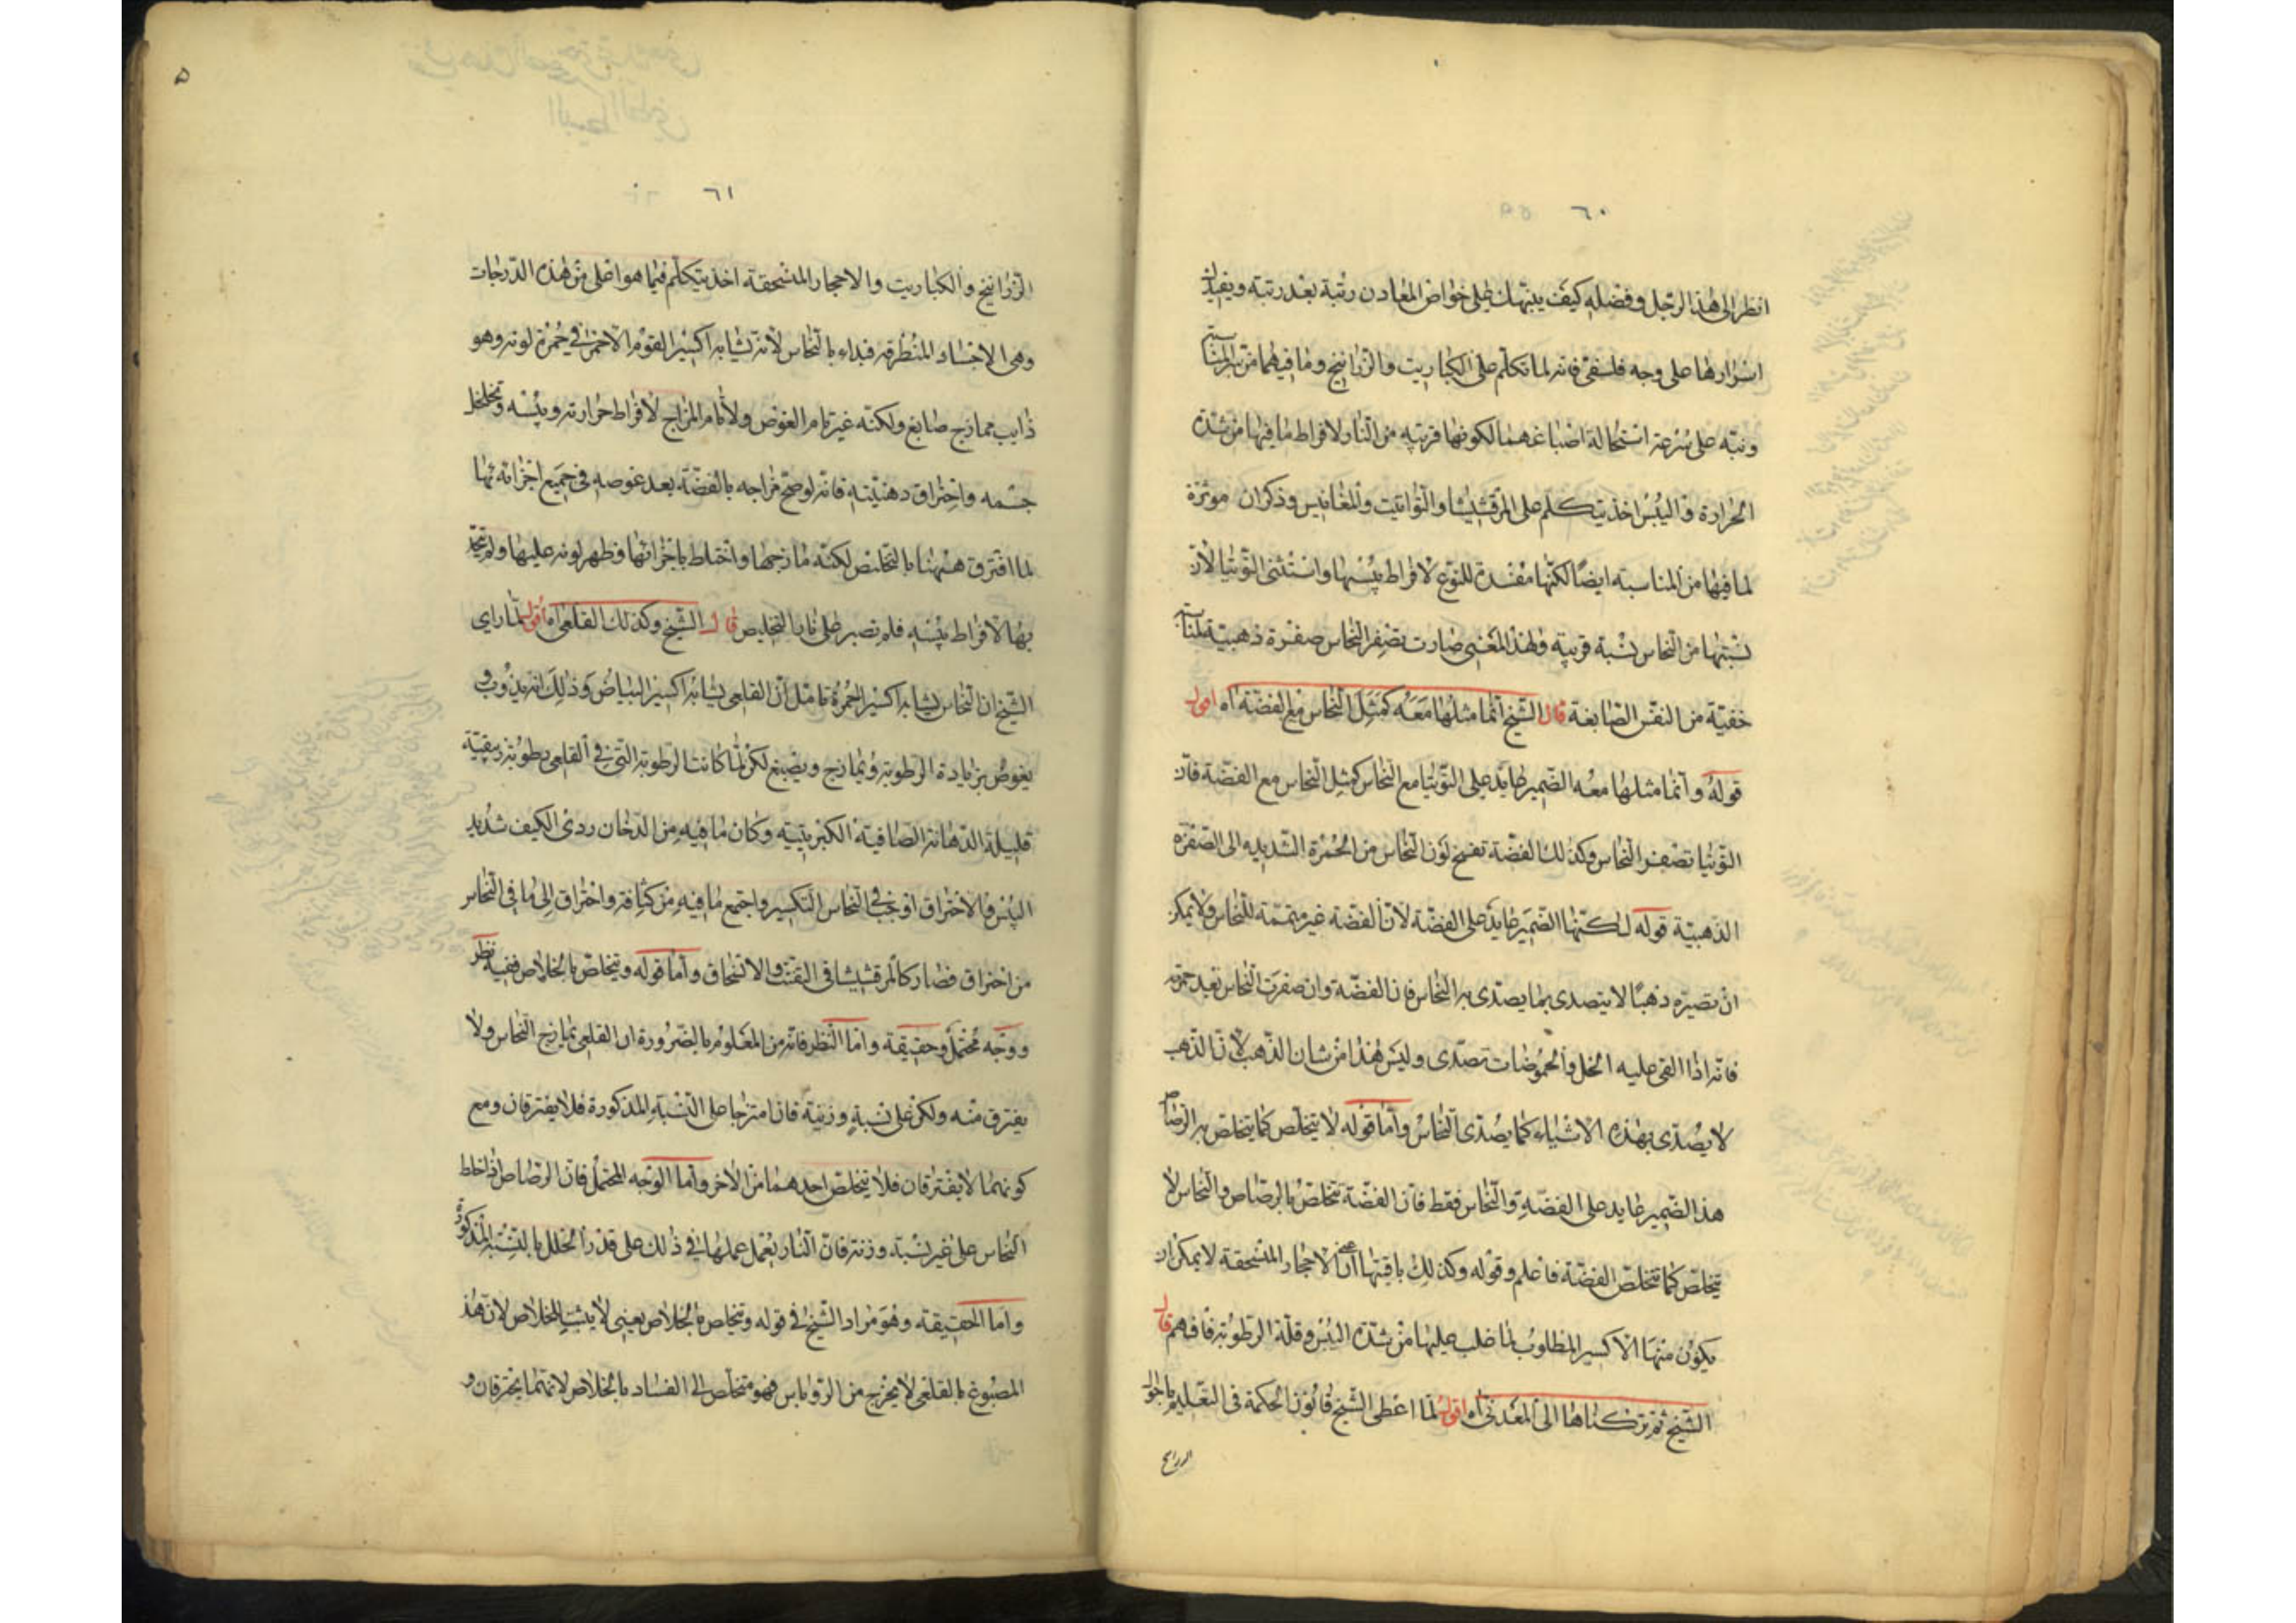 ٦٠
انظر الى هذا الرجل وفضله كيف ينبهك على خواص المعادن رتبة بعد رتبة ويفيدك
اسرارها على وجه فلسفى فانه لما تكلم على الكباريت والزرانيخ وما فيهما من المناسبة
ونبه على سرعة استحالة اصباغهما لكونها قريبة من النار ولافراط ما فيها من شدة
الحرارة واليبس اخذ يتكلم على المرقشيشا والتواتيت والمغانيس وذكر ان موثرة
لما فيها من المناسبة ايضا لكنها مفسدة للنوع لافراط يبسها واستثنى التوتيا لان
نسبتها من النحاس نسبة قريبة ولهذا المعنى صارت تصفر النحاس صفرة ذهبية لمناسبة
خفية من النفس الصابغة قال الشيخ انما مثلها معه كمثل النحاس مع الفضة اه اقول
قوله وانما مثلها معه الضمير عايد على التوتيا مع النحاس كمثل النحاس مع الفضة فان
التوتيا تصفر النحاس وكذلك الفضة تفسخ لون النحاس من الحمرة الشديدة الى الصفرة
الذهبية قوله لكنها الضمير عايد على الفضة لان الفضة غير متممة للنحاس ولا يمكن
ان تصيره ذهبا لا يتصدى بما يصدى به النحاس فان الفضة وان صفرت النحاس بعد حمرته
فانه اذا القى عليه الخل والحموضات تصدى وليس هذا من شان الذهب لان الذهب
لا يصدى بهذه الاشياء كما يصدى النحاس واما قوله لا يتخلص كما يتخلص بالرصاص
هذا الضمير عايد على الفضة والنحاس فقط فان الفضة تتخلص بالرصاص والنحاس لا
يتخلص كما تتخلص الفضة فاعلم وقوله وكذلك باقيتها اعنى الاحجار المنسحقة لا يمكن ان
يكون منها الاكسير المطلوب لما غلب عليها من شدة اليبس وقلة الرطوبة فافهم قال
الشيخ ثم تركناها الى المعدنى اه اقول لما اعطى الشيخ قانون الحكمة فى التعليم باحوال
الزرانيخ
٦١
٥
الزرانيخ والكباريت والاحجار المنسحقة اخذ يتكلم فيما هو اعلى من هذه الدرجات
وهى الاجساد المنطرقة فبداء بالنحاس لانه يشابه اكسير القوم الاحمر فى حمرة لونه وهو
ذايب ممازج صابغ ولكنه غير تام الغوص ولا تام المزاج لافراط حرارته ويبسه وتخلخل
جسمه واحتراق دهنيته فانه لو صح مزاجه بالفضة بعد غوصه فى جميع اجزائه بها
لما افترق منها بالتخليص لكنه مازجها واختلط باجزائها وظهر لونه عليها ولم يتحد
بها لافراط يبسه فلم تصبر على نار التخليص قال الشيخ وكذلك القلعى اه اقول لما راى
الشيخ ان النحاس يشابه اكسير الحمرة تامل ان القلعى يشابه اكسير البياض وذلك انه يذوب و
يغوص بزيادة الرطوبة ويمازج ويصبغ لكن لما كانت الرطوبة التى فى القلعى رطوبة زيبقية
قليلة الدهانة الصافية الكبريتية وكان ما فيه من الدخان ردى الكيف شديد
اليبس والاحتراق اوجب فى النحاس التكسير واجتمع ما فيه من كثافة واحتراق الى ما فى النحاس
من احتراق فصار كالمرقشيشا فى التفتت والانسحاق واما قوله ويتخلص بالخلاص ففيه نظر
ووجه محتمل وحقيقة واما النظر فانه من المعلوم بالضرورة ان القلعى يمازج النحاس ولا
يفترق منه ولكن على نسبة وزنية فان امتزجا على النسبة المذكورة فلا يفترقان ومع
كونهما لا يفترقان فلا يتخلص احدهما من الاخر واما الوجه المحتمل فان الرصاص اذا خلط
النحاس على غير نسبة وزنية فان النار يعمل عملها فى ذلك على قدر الخلل بالنسبة المذكورة
واما الحقيقة وهو مراد الشيخ فى قوله ويتخلص بالخلاص يعنى لا يثبت للخلاص لان هذا
المصبوغ بالقلعى لا يخرج من الروباس فهو متخلص الى الفساد بالخلاص لانهما يحترقان و